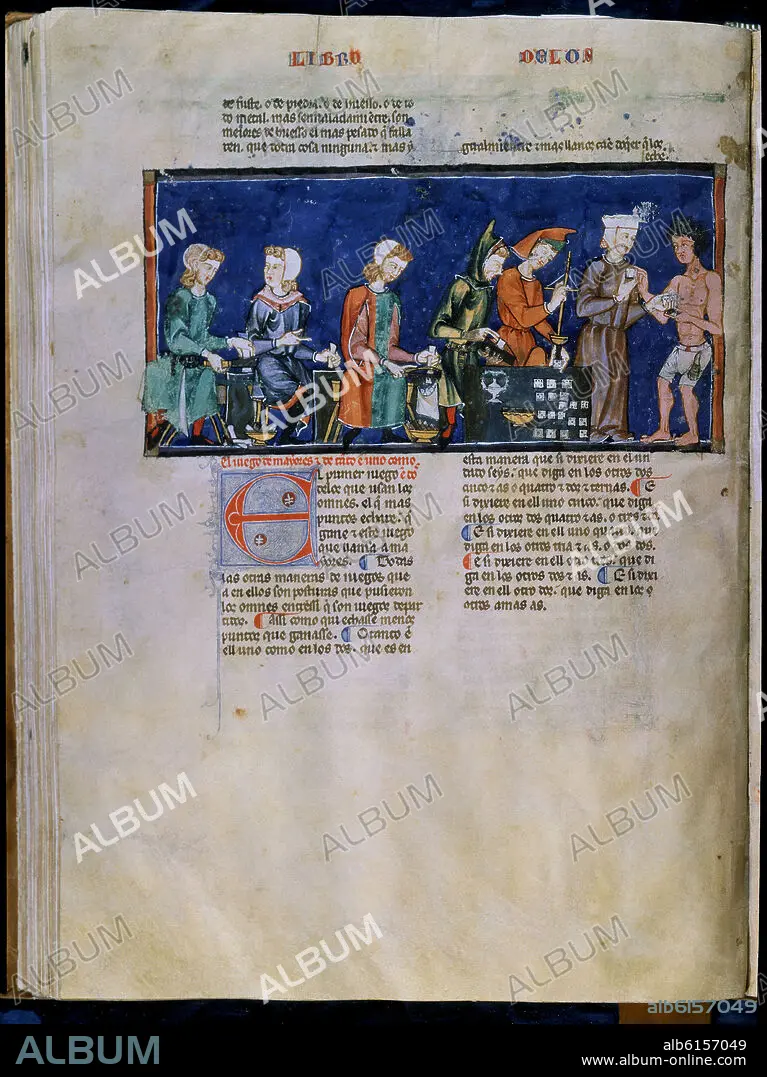 LIBRO DELOS
de fuste. o de piedra. o de huesso. o de to
do metal. mas sennaladamientre. son
meiores de huesso el mas pesado q̃ falla
ren. que dotra cosa ninguna. & mas y
gualmientre & mas llanos caen doquier q̃ los
eche.
El iuego de mayores & de tanto e uno como
El primer iuego e to
delos que usan los
omnes. el q̃ mas
puntos echare. q̃
gane & este iuego
que llama a ma
yores. Todas
las otras maneras de iuegos que
a en ellos son posturas que pusieron
los omnes entressi q̃ son iuegos depar
tidos. Assi como qui echasse menos
puntos que ganasse. Otanto e
ell uno como en los dos. que es en
esta manera que si dixiere en el un
dado seys. que diga en los otros dos
cinco & as o quatro & dos & ternas. E
si dixiere en ell uno cinco. que diga
en los otros dos quatro & as. o tres & dos
E si dixiere en ell uno quatro. que
diga en los otros tria & as. o dos. dos.
E si dixiere en ell uno tres. que di
ga en los otros dos & as. E si dixi
ere en ell otro dos. que diga en los
otros amas as.
ALBUM
alb6157049
ALBUM
alb6157049
www.album-online.com